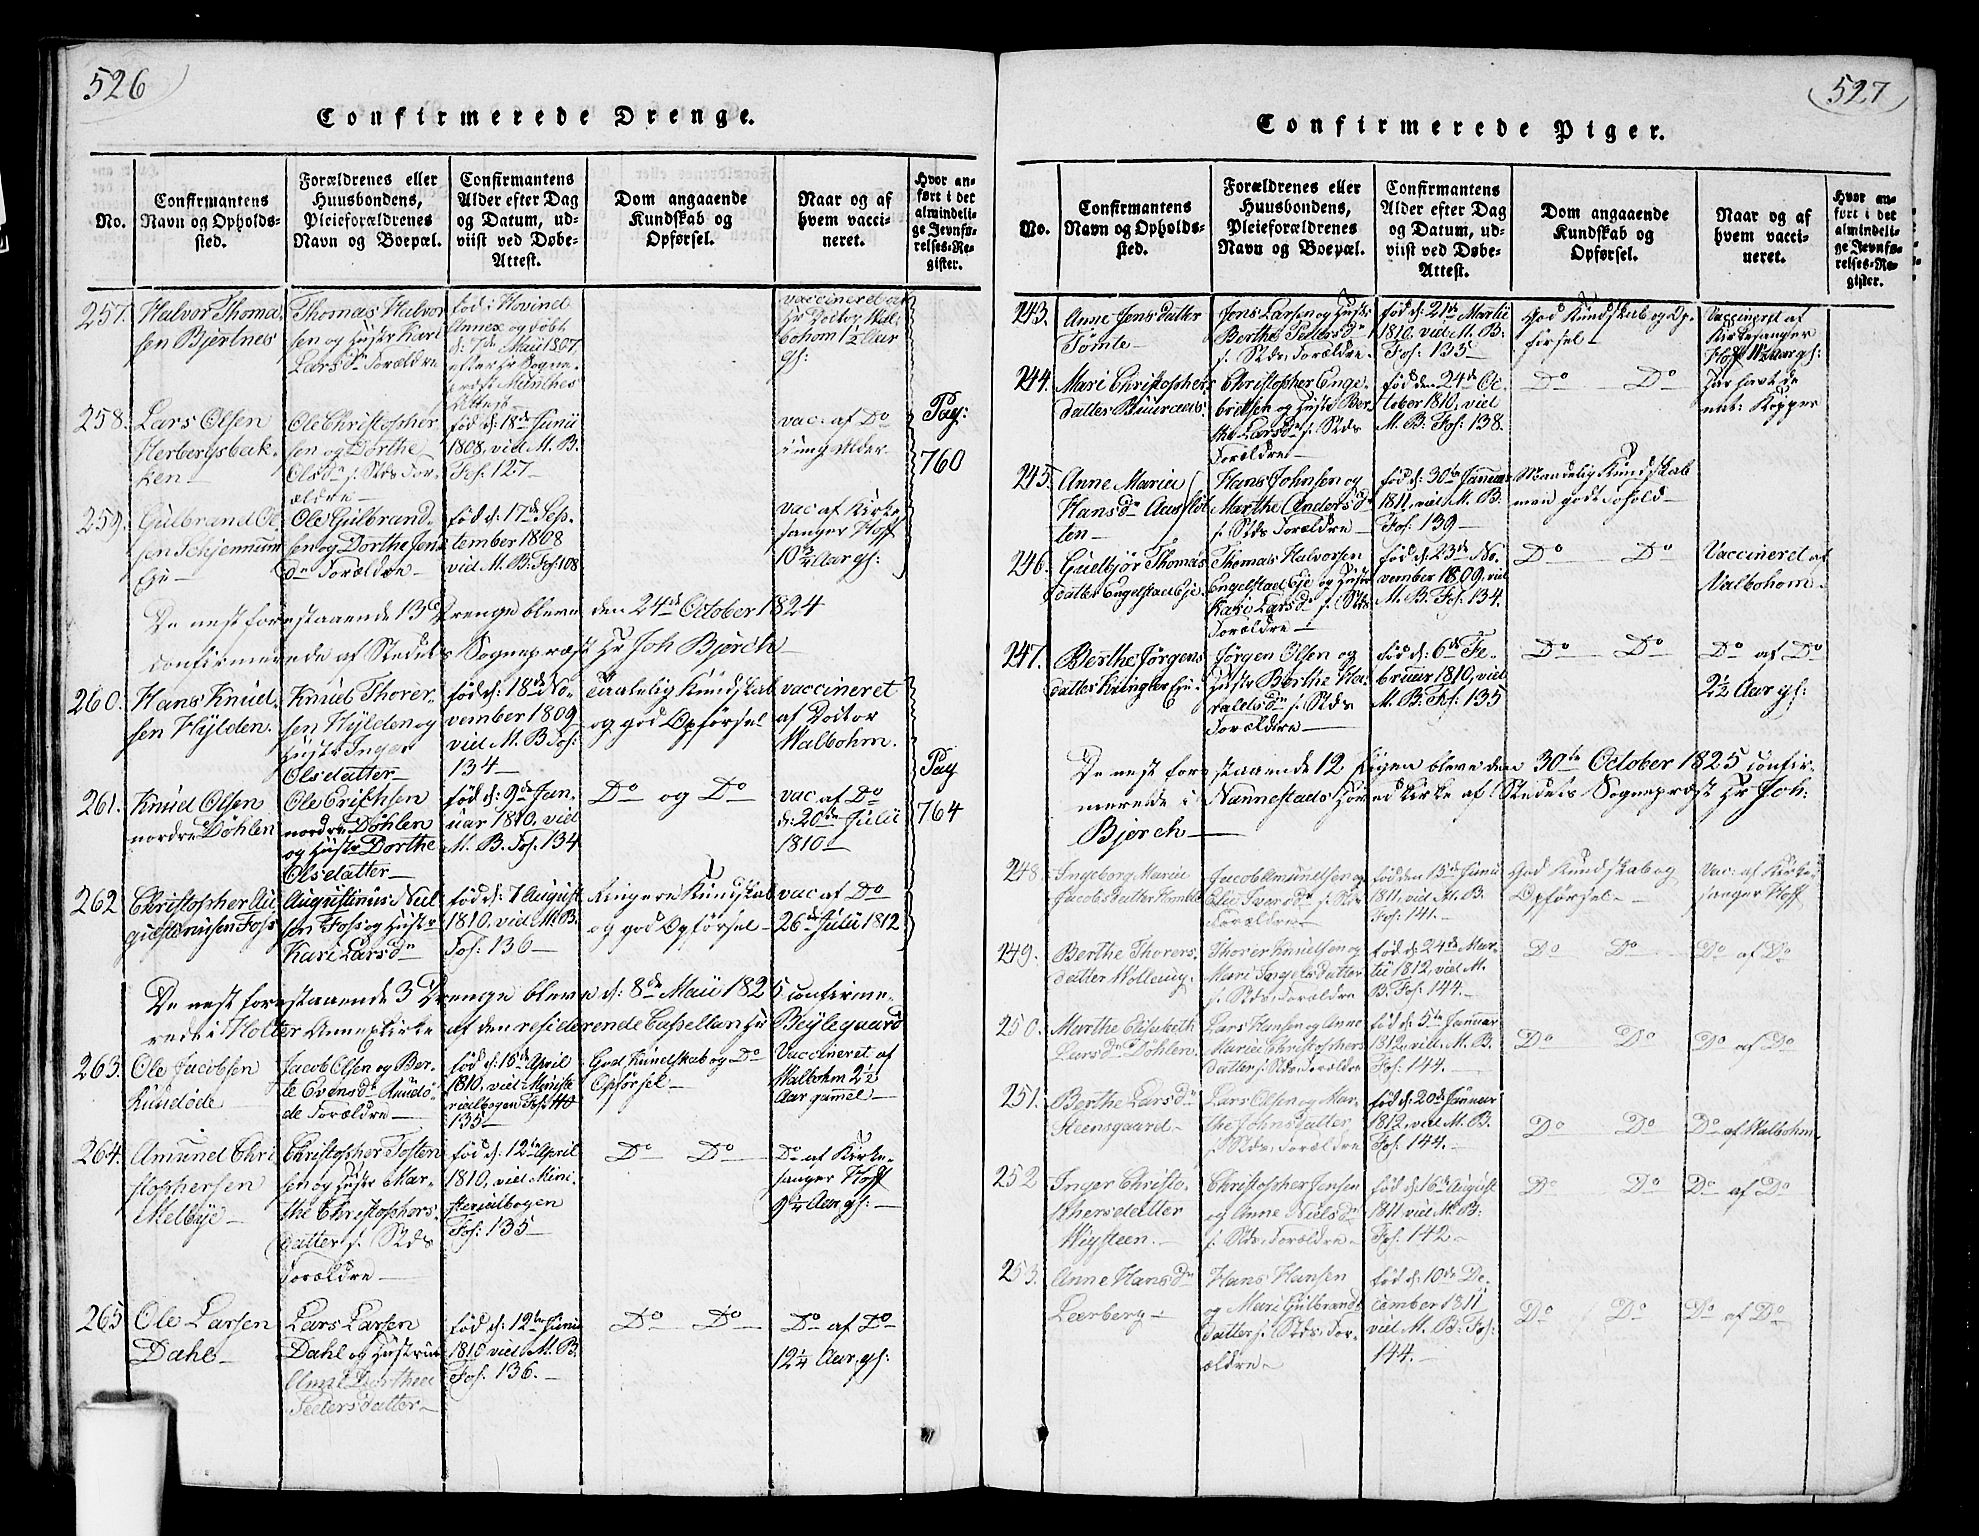 526
Confirmerede Drenge.
No.
Confirmantens
Navn og Opholds-
sted.
Forældrenes eller
Huusbondens,
Pleieforældrenes
Navn og Boepæl.
Confirmantens
Alder efter Dag
og Datum, ud-
viist ved Døbe-
Attest.
Dom angaaende
Kundskab og
Opførsel.
Naar og af
hvem vacci-
neret.
Hvor an-
ført i det
almindeli-
ge Jevnfø-
relses-Re-
gister.
257.
Halvor Thoma-
sen Bjertnes
Thomas Halvor
sen og Hustr Kari
Larsdr Forældre
fød i Hovind
Annex og døbt
d: 7de Maii 1807,
efter Hr Sogne-
Munthes
Attest
vaccineret af
Hr Doctor Wal-
bohm 1½ Aar
gl:
258.
Lars Olsen
Herbergsbak-
ken
Ole Christopher
sen og Dorthe
Olsdr s. Stds For-
ældre
fød d: 18de Junii
1808, vid M. B.
Fol: 127
vac: af Do
i ung Alder
Pag:
760
259.
Gulbrand Ol-
sen Schjennum
Eje
Ole Gulbrand-
sen og Dorthe Jens
dr Forældre
fød d: 17de Sep-
tember 1808
vid M. B. Fol: 108
vac af Kirke
sanger Hoff
10¾ Aar gl:
De nest forestaaende 13 Drenge bleve den 24de October 1824
confirmerede af Stedets Sognepræst Hr Joh Bjørch
260.
Hans Knud-
sen Hylden.
Knud Thorer-
sen Hylden og
Hustr Inger
Olsdatter
fød d: 18de No-
vember 1809
vid M. B Fol:
134
taalelig Kundskab
og god Opførsel
vaccineret
af Doctor
Walbohm.
261.
Knud Olsen
nordre Døhlen
Ole Erichsen
nordre Døhlen
og Hustr Dorthe
Olsdatter
fød d: 9de Jan-
uar 1810, vid
M. B. Fol. 134
Do og Do
vac af Do
d: 20de Julii
1810
Pag
764
262
Christopher Au-
gustinusen Foss
Augustinus Niel
sen Foss og Hustr
Kari Larsdr
fød d: 7 August
1810, vid M. B.
Fol: 136
Ringere Kundskab
og god Opførsel
vac af Do
26de Julii 1812
De nest forestaaende 3 Drenge bleve d: 8de Maii 1825 confirme-
rede i Holter Annexkirke af den residerende Capellan Hr Beylegaard
263.
Ole Jacobsen
Rundøde
Jacob Olsen og Ber-
te Evensdr Rundø-
de Forældre
fød d: 16de April
1810, vid Ministe
rialbogen Fol:
135
God Kundskab og Do
Opførsel
Vaccineret af
Walbohm 2½
Aar gammel
264.
Amund Chri
stophersen
Melbye
Christopher Tosten
sen og Hustr Mar-
the Christophers-
datter s. Stds
Forældre
fød d: 12te April
1810, vid Mini
sterialbogen
Fol: 135
Do Do
Do af Kirke-
sanger Hoff
9¼ Aar gl:
265
Ole Larsen
Dahl
Lars Larsen
Dahl og Hustrue
Anne Dorthea
Pedersdatter
fød d: 12te Junii
1810 vid M. B.
Fol. 136.
Do Do
Do af Do
12¼ Aar gl:
527
Confirmerede Piger.
No.
Confirmantens
Navn og Opholds-
sted.
Forældrenes eller
Huusbondens,
Pleieforældrenes
Navn og Boepæl.
Confirmantens
Alder efter Dag
og Datum, ud-
viist ved Døbe-
Attest.
Dom angaaende
Kundskab og
Opførsel.
Naar og af
hvem vacci-
neret.
Hvor an-
ført i det
almindeli-
ge Jevnfø-
relses-Re-
gister.
243.
Anne Jensdatter
Tomte
Jens Larsen og Hustr
Berthe Pedersdr
s. Stds. Forældre
fød d: 21de Martii
1810. vid M. B:
Fol: 135
God Kundskab og Op-
førsel
Vaccineret af
Kirkesanger
Hoff 11½ Aar gl:
244.
Mari Christophers
datter Buuraas
Christopher Enge
bretsen og Hustr Ber
the Larsdr s. Stds
Forældre
fød den 24de Oc
tober 1810, vid
M. B: Fol: 138.
Do Do
Har havt de
nat: Kopper
245.
Anne Maria
Hansdr Aasslet
ten
Hans Johnsen og
Marthe Andersdr
s. Stds Forældre
fød d: 30te Januar
1811, vid M. B.
Fol: 139
Maadelig Kundskab
men godt Forhold
246.
Guldbjør Thomas
datter Engelstad Eje
Thomas Halvorsen
Engelstad Eje og Hustr
Kari Larsdr s. Stds
Forældre
fød d: 23de No-
vember 1809, vid
M. B. Fol. 134.
Do Do
Vaccineret af
Walbohm
247.
Berthe Jørgens
datter Kringler Eje
Jørgen Olsen og
Hustr Berthe Ha-
raldsdr s. Stds
Forældre
fød d: 6de Fe-
bruar 1810, vid
M. B: Fol: 135
Do Do
Do af Do
2½ Aar gl:
De nest forestaaende 12 Pigen bleve den 30te October 1825 confir-
merede i Nannestads Hovedkirke af Stedets Sognepræst Hr Joh:
Bjørch
248.
Ingeborg Maria
Jacobsdatter Hemble
Jacob Amundsen og
Else Iversdr s. Stds
Forældre
fød den 15de Junii
1811, vid M. B.
Fol: 141.
God Kundskab og
Opførsel
Vac: af Kirke
sanger Hoff
249.
Berthe Thorers
datter Holleug.
Thorer Knudsen og
Mari Ingelsdatter
s. Stds. Forældre
fød d: 24de Mar-
tii 1812, vid M.
B. Fol: 144.
Do Do
Do af Do
250.
Marthe Elisabeth
Larsdr Døhlen
Lars Hansen og Anne
Maria Christophers
datter s. Stds. Forældre
fød d: 5te Januar
1812, vid M. B.
Fol: 144.
Do Do
Do af Do
251.
Berthe Larsdr
Steensgaard
Lars Olsen og Mar-
the Johnsdatter
s. Stds. Forældre
fød d: 20de Januar
1812, vid M. B.
Fol: 144.
Do Do
Do af Walbohm
252
Inger Christo-
phersdatter
Wigsteen.
Christopher Jensen
og Anne Nielsdr
s. Stds. Forældre
fød d: 16de August
1811, vid M. B:
Fol: 142
Do Do
Do af Do
253.
Anne Hansdr
Leerberg
Hans Hansen
og Mari Gulbrands
datter s. Stds. For-
ældre
fød d: 10de De-
cember 1811
vid M. B: Fol:
144.
Do Do
Do af Do